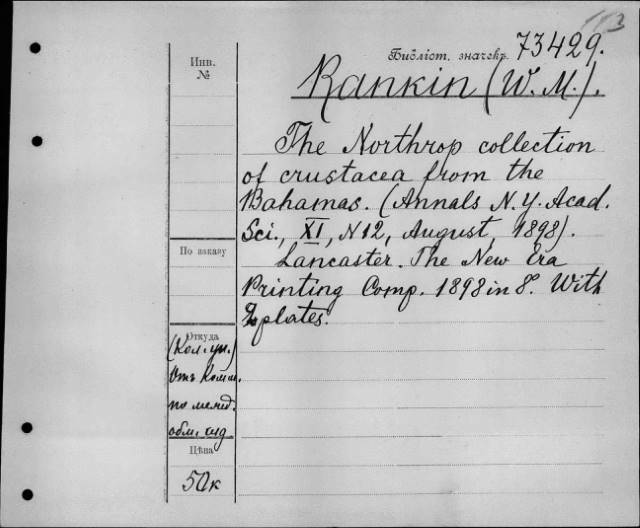 Инв.
№
Библіот. значекъ 73429.
Rankin (W. M.).
The Northrop collection
of crustacea from the
Bahamas. (Annals N. Y. Acad.
Sci., XI, N12, August, 1898).
Lancaster. The New Era
Printing Comp. 1898 in 8°. With
2 plates.
По заказу
Откуда
Отъ Комм.
по межд.
обм. изд.
Цѣна
50к